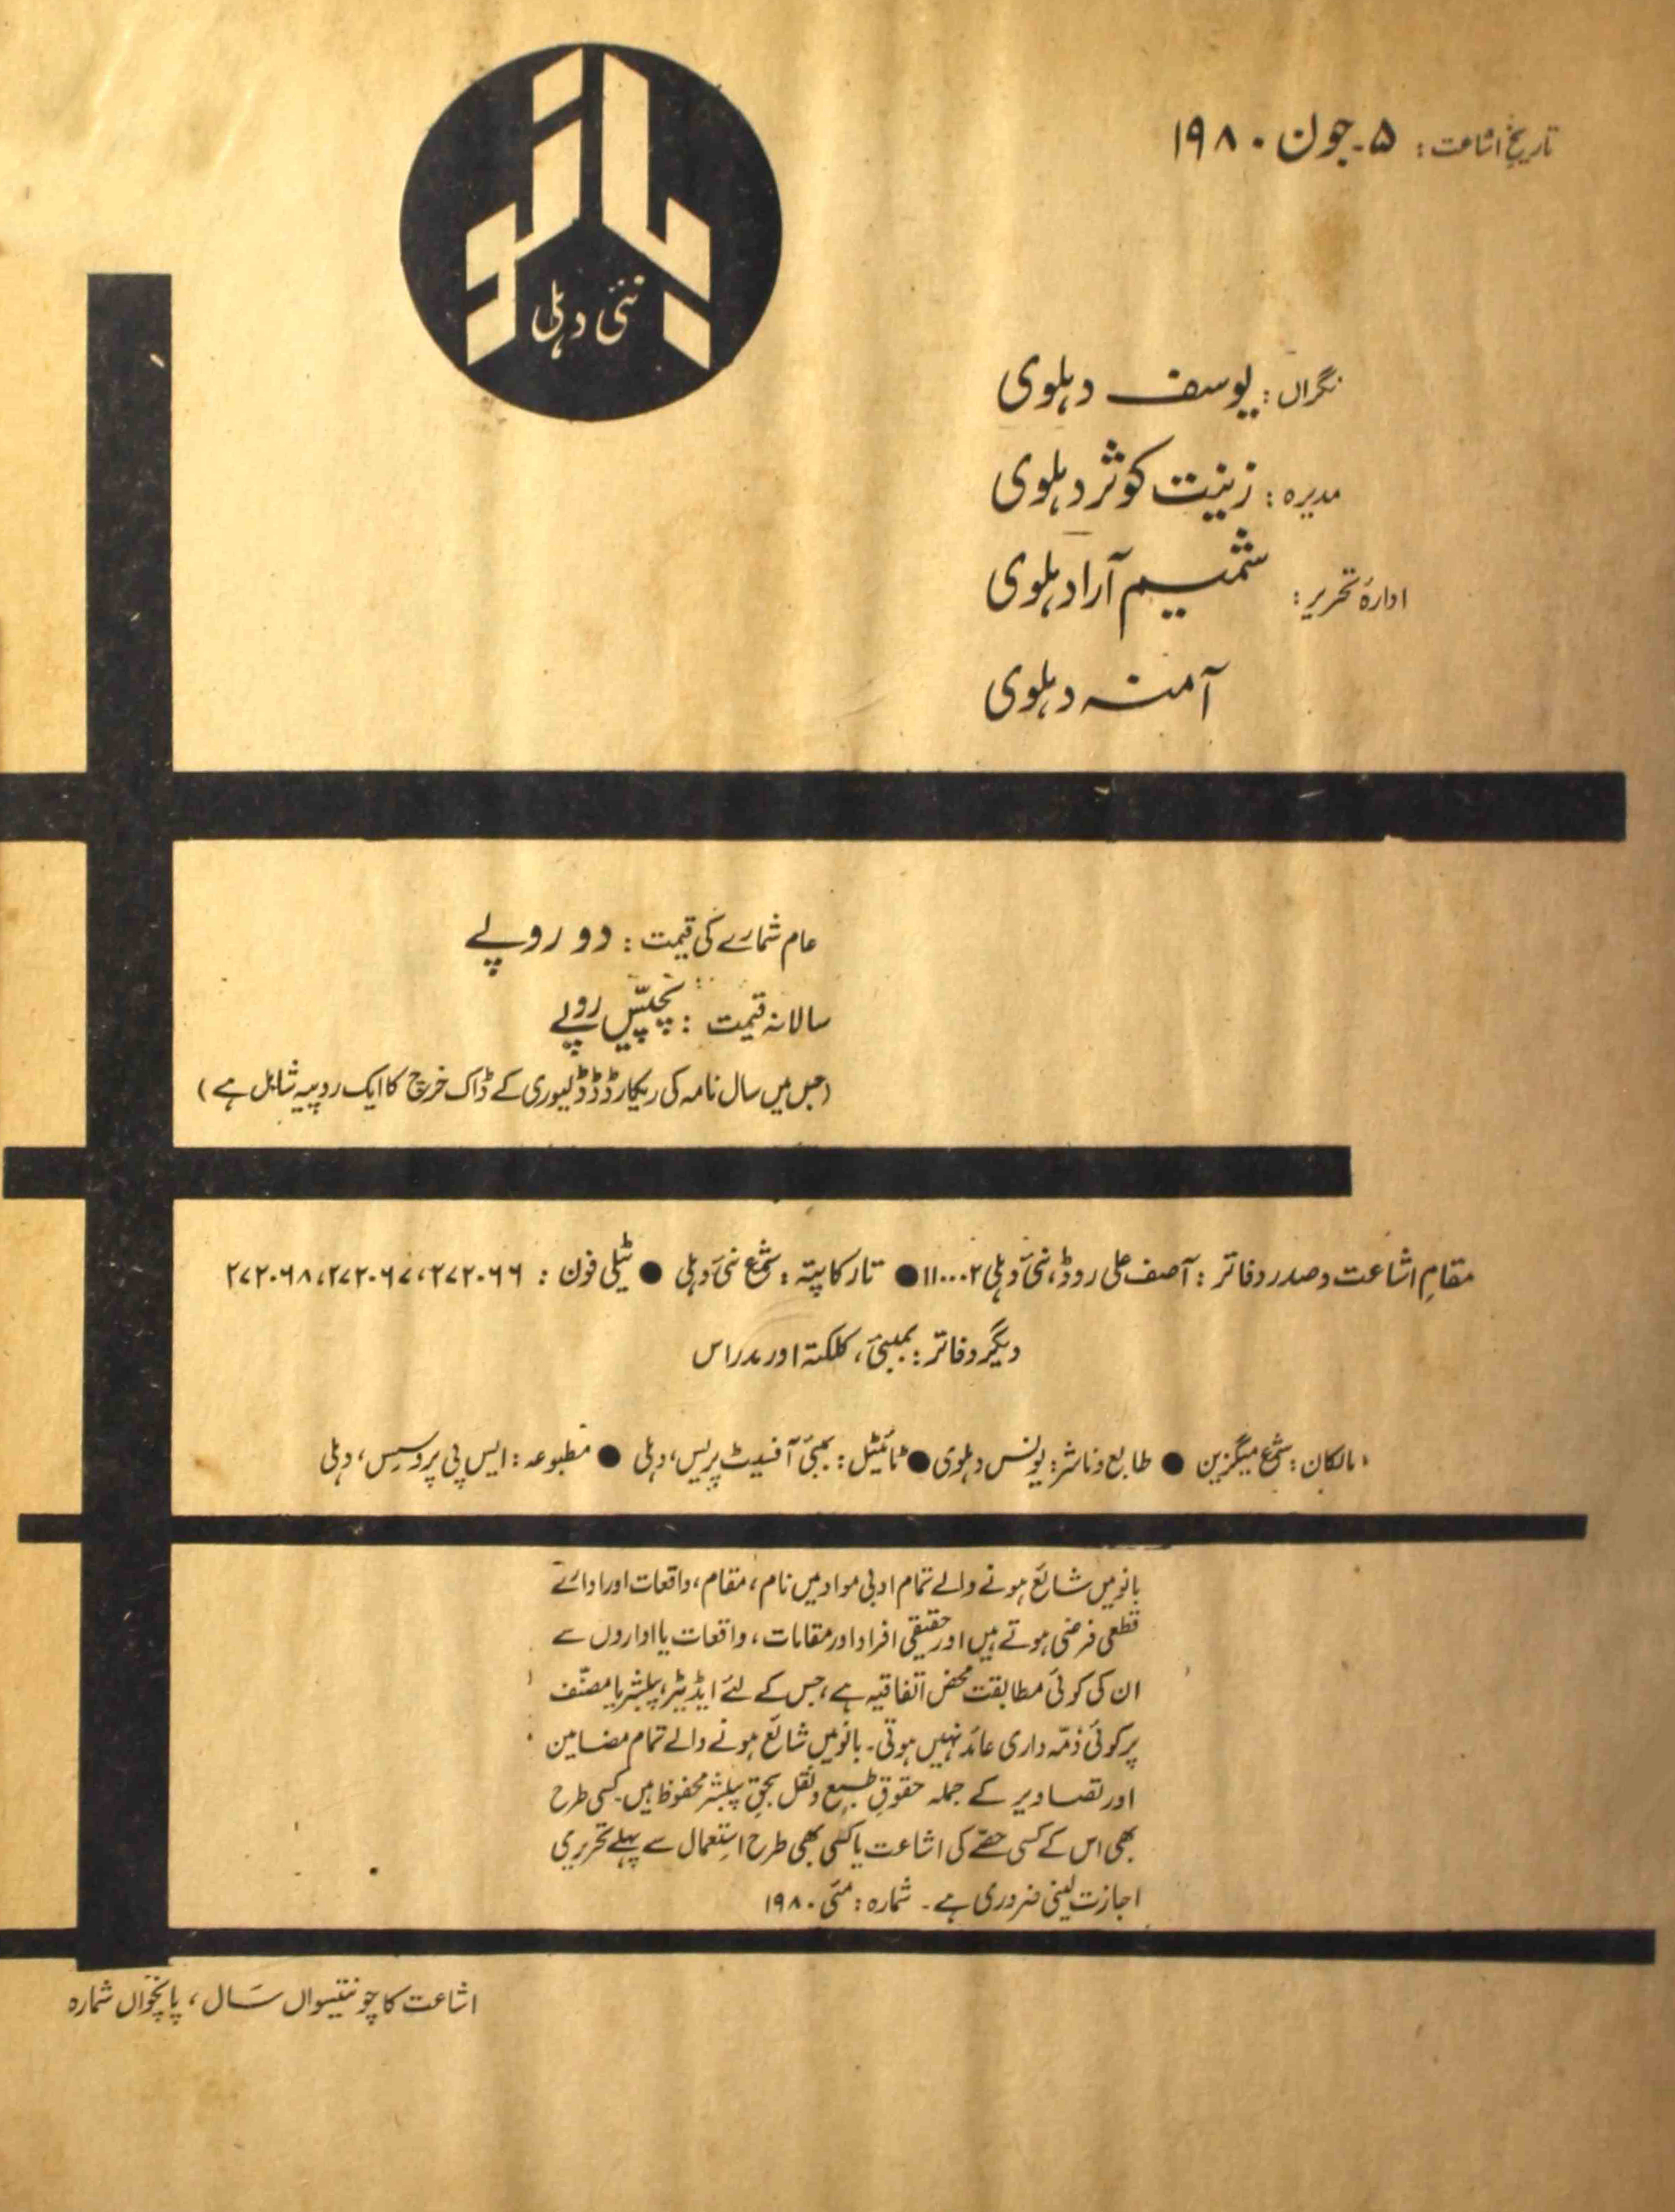 تاریخ اشاعت: ۵۔جون ۱۹۸۰
بانو
نئی دہلی
نگراں: یوسف دہلوی
مدیرہ: زینت کوثر دہلوی
ادارۂ تحریر: شمیم آرا دہلوی
آمنہ دہلوی
عام شمارے کی قیمت: دو روپے
سالانہ قیمت: پچیس روپے
(جس میں سال نامہ کی ریکارڈڈ ڈلیوری کے ڈاک خرچ کا ایک روپیہ شامل ہے)
مقامِ اشاعت و صدر دفاتر: آصف علی روڈ، نئی دہلی ۱۱۰۰۰۲ ● تار کا پتہ: شمع نئی دہلی ● ٹیلی فون: ۲۷۲۰۶۶، ۲۷۲۰۶۷، ۲۷۲۰۶۸
دیگر دفاتر: بمبئی، کلکتہ اور مدراس
مالکان: شمع میگزین ● طابع و ناشر: یونس دہلوی ● ٹائیٹل: بمبئی آفسیٹ پریس، دہلی ● مطبوعہ: ایس پی پروسیس، دہلی
بانو میں شائع ہونے والے تمام ادبی مواد میں نام، مقام، واقعات اور ادارے
قطعی فرضی ہوتے ہیں اور حقیقی افراد اور مقامات، واقعات یا اداروں سے
ان کی کوئی مطابقت محض اتفاقیہ ہے، جس کے لئے ایڈیٹر، پبلشر یا مصنّف
پر کوئی ذمّہ داری عائد نہیں ہوتی۔ بانو میں شائع ہونے والے تمام مضامین
اور تصاویر کے جملہ حقوقِ طبع و نقل بحقِ پبلشر محفوظ ہیں۔ کسی طرح
بھی اس کے کسی حصّے کی اشاعت یا کسی بھی طرح استعمال سے پہلے تحریری
اجازت لینی ضروری ہے۔ شمارہ: مئی ۱۹۸۰
اشاعت کا چونتیسواں سال، پانچواں شمارہ